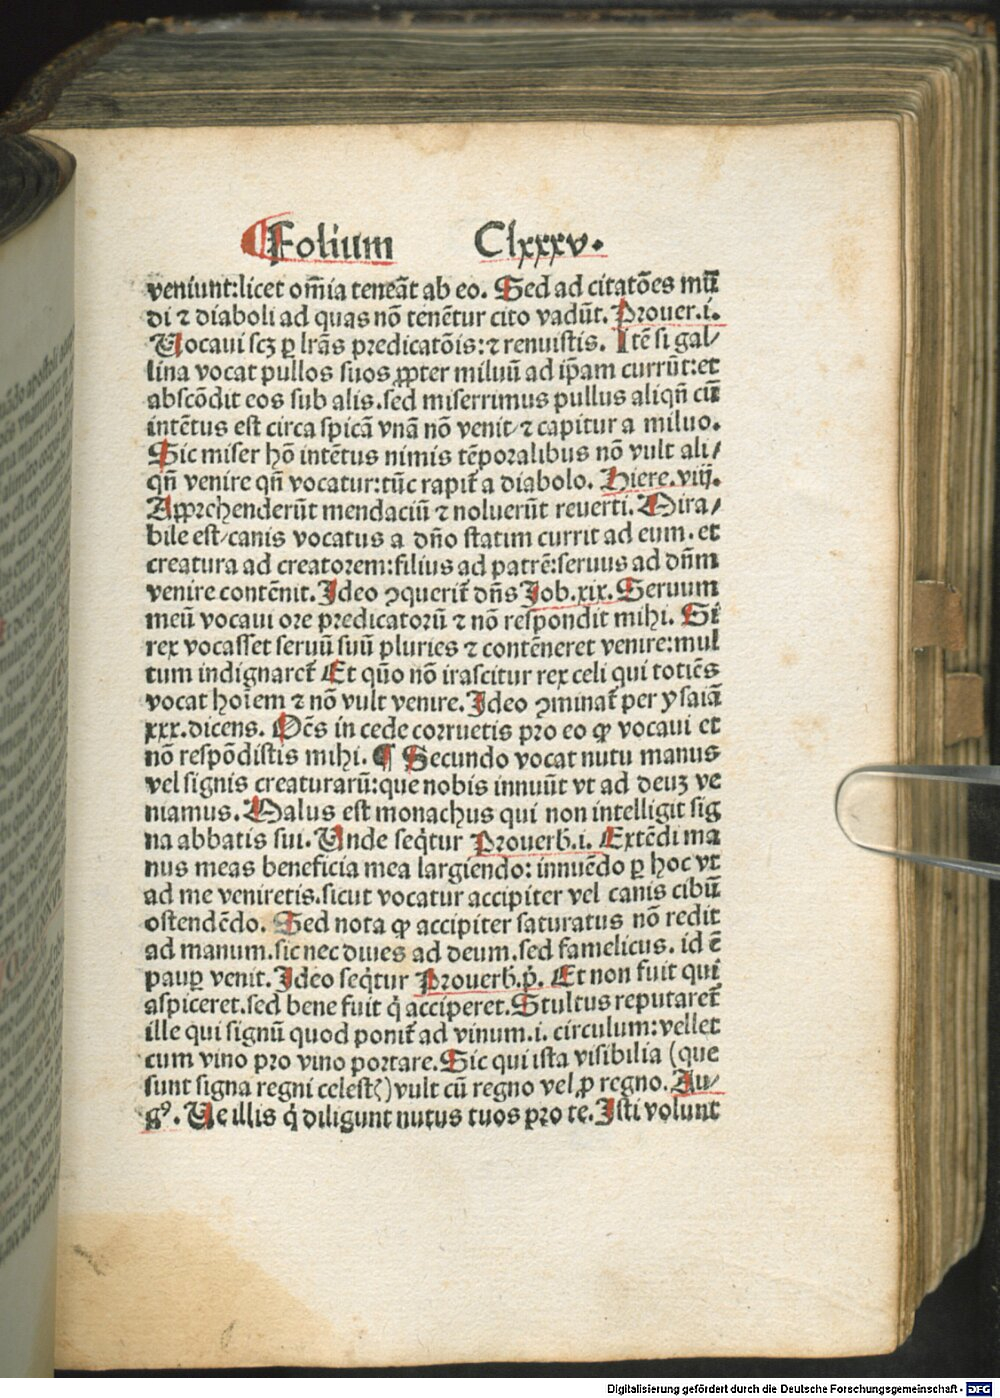 ¶Folium Clxxxv.
veniunt:licet om̄ia teneāt ab eo. Sed ad citatōes mū
di ⁊ diaboli ad quas nō tenētur cito vadūt. Prouer.i.
Uocaui scꝫ ꝑ lr̄as predicatōis:⁊ renuistis. Itē si gal⸗
lina vocat pullos suos ꝓpter miluū ad ip̄am currūt:et
abscōdit eos sub alis.sed miserrimus pullus aliqn̄ cū
intētus est circa spicā vnā nō venit/⁊ capitur a miluo.
Sic miser hō intētus nimis tēporalibus nō vult ali⸗
qn̄ venire qn̄ vocatur:tūc rapit᷑ a diabolo. Hiere.viij.
Apprehenderūt mendaciū ⁊ noluerūt reuerti. Mira⸗
bile est/canis vocatus a dn̄o statim currit ad eum.et
creatura ad creatorem:filius ad patrē:seruus ad dn̄m
venire contēnit. Ideo ꝯquerit᷑ dn̄s Job.xix. Seruum
meū vocaui ore predicatorū ⁊ nō respondit mihi. Si
rex vocasset seruū suū pluries ⁊ contēneret venire:mul
tum indignaret᷑ Et quō nō irascitur rex celi qui totiēs
vocat hoīem ⁊ nō vult venire. Ideo ꝯminat᷑ per ysaiā
xxx.dicens. Oēs in cede corruetis pro eo ꝙ vocaui et
nō respōdistis mihi. ¶ Secundo vocat nutu manus
vel signis creaturarū:que nobis innuūt vt ad deuꝫ ve
niamus. Malus est monachus qui non intelligit sig
na abbatis sui. Unde seq̇tur Prouerb̄.i. Extēdi ma
nus meas beneficia mea largiendo: innuēdo ꝑ hoc vt
ad me veniretis.sicut vocatur accipiter vel canis cibū
ostendēdo. Sed nota ꝙ accipiter saturatus nō redit
ad manum.sic nec diues ad deum.sed famelicus. id ē
pauꝑ venit. Ideo seq̇tur Prouerb̄.p̄. Et non fuit qui
aspiceret.sed bene fuit q̇ acciperet. Stultus reputaret᷑
ille qui signū quod ponit᷑ ad vinum.i. circulum:vellet
cum vino pro vino portare. Sic qui ista visibilia (que
sunt signa regni celestꝭ) vult cū regno vel ꝓ regno. Au⸗
gꝰ. Ue illis q̇ diligunt nutus tuos pro te. Isti volunt
Digitalisierung gefördert durch die Deutsche Forschungsgemeinschaft - DFG